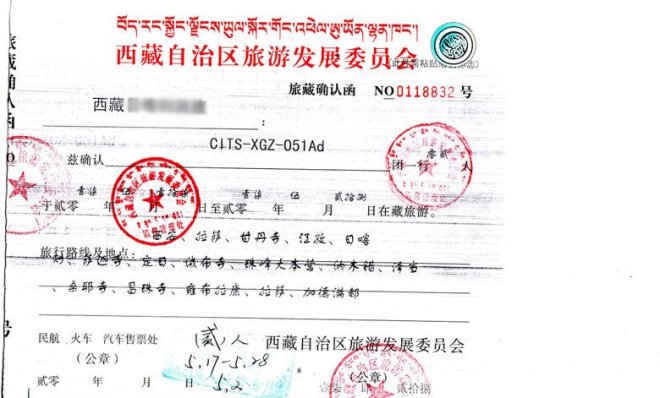 བོད་རང་སྐྱོང་ལྗོངས་ཡུལ་སྐོར་གོང་འཕེལ་ཨུ་ཡོན་ལྷན་ཁང་།
西藏自治区旅游发展委员会
旅藏确认函 NO 0118832 号
西藏
CITS-XGZ-051Ad
兹确认 团一行 零贰 人
壹柒 伍 壹柒 伍 贰拾捌
于贰零 年 月 日至贰零 年 月 日在藏旅游。
拉萨、甘丹寺、江孜、日喀
旅行路线及地点:
则、萨迦寺、定日、绒布寺、珠峰大本营、纳木错、泽当
、桑耶寺、昌珠寺、雍布拉康、拉萨、加德满都
民航 火车 汽车售票处 贰人 西藏自治区旅游发展委员会
(公章) 5.17-5.28 (公章)
贰零 年 月 日 5.2 壹柒 贰拾捌